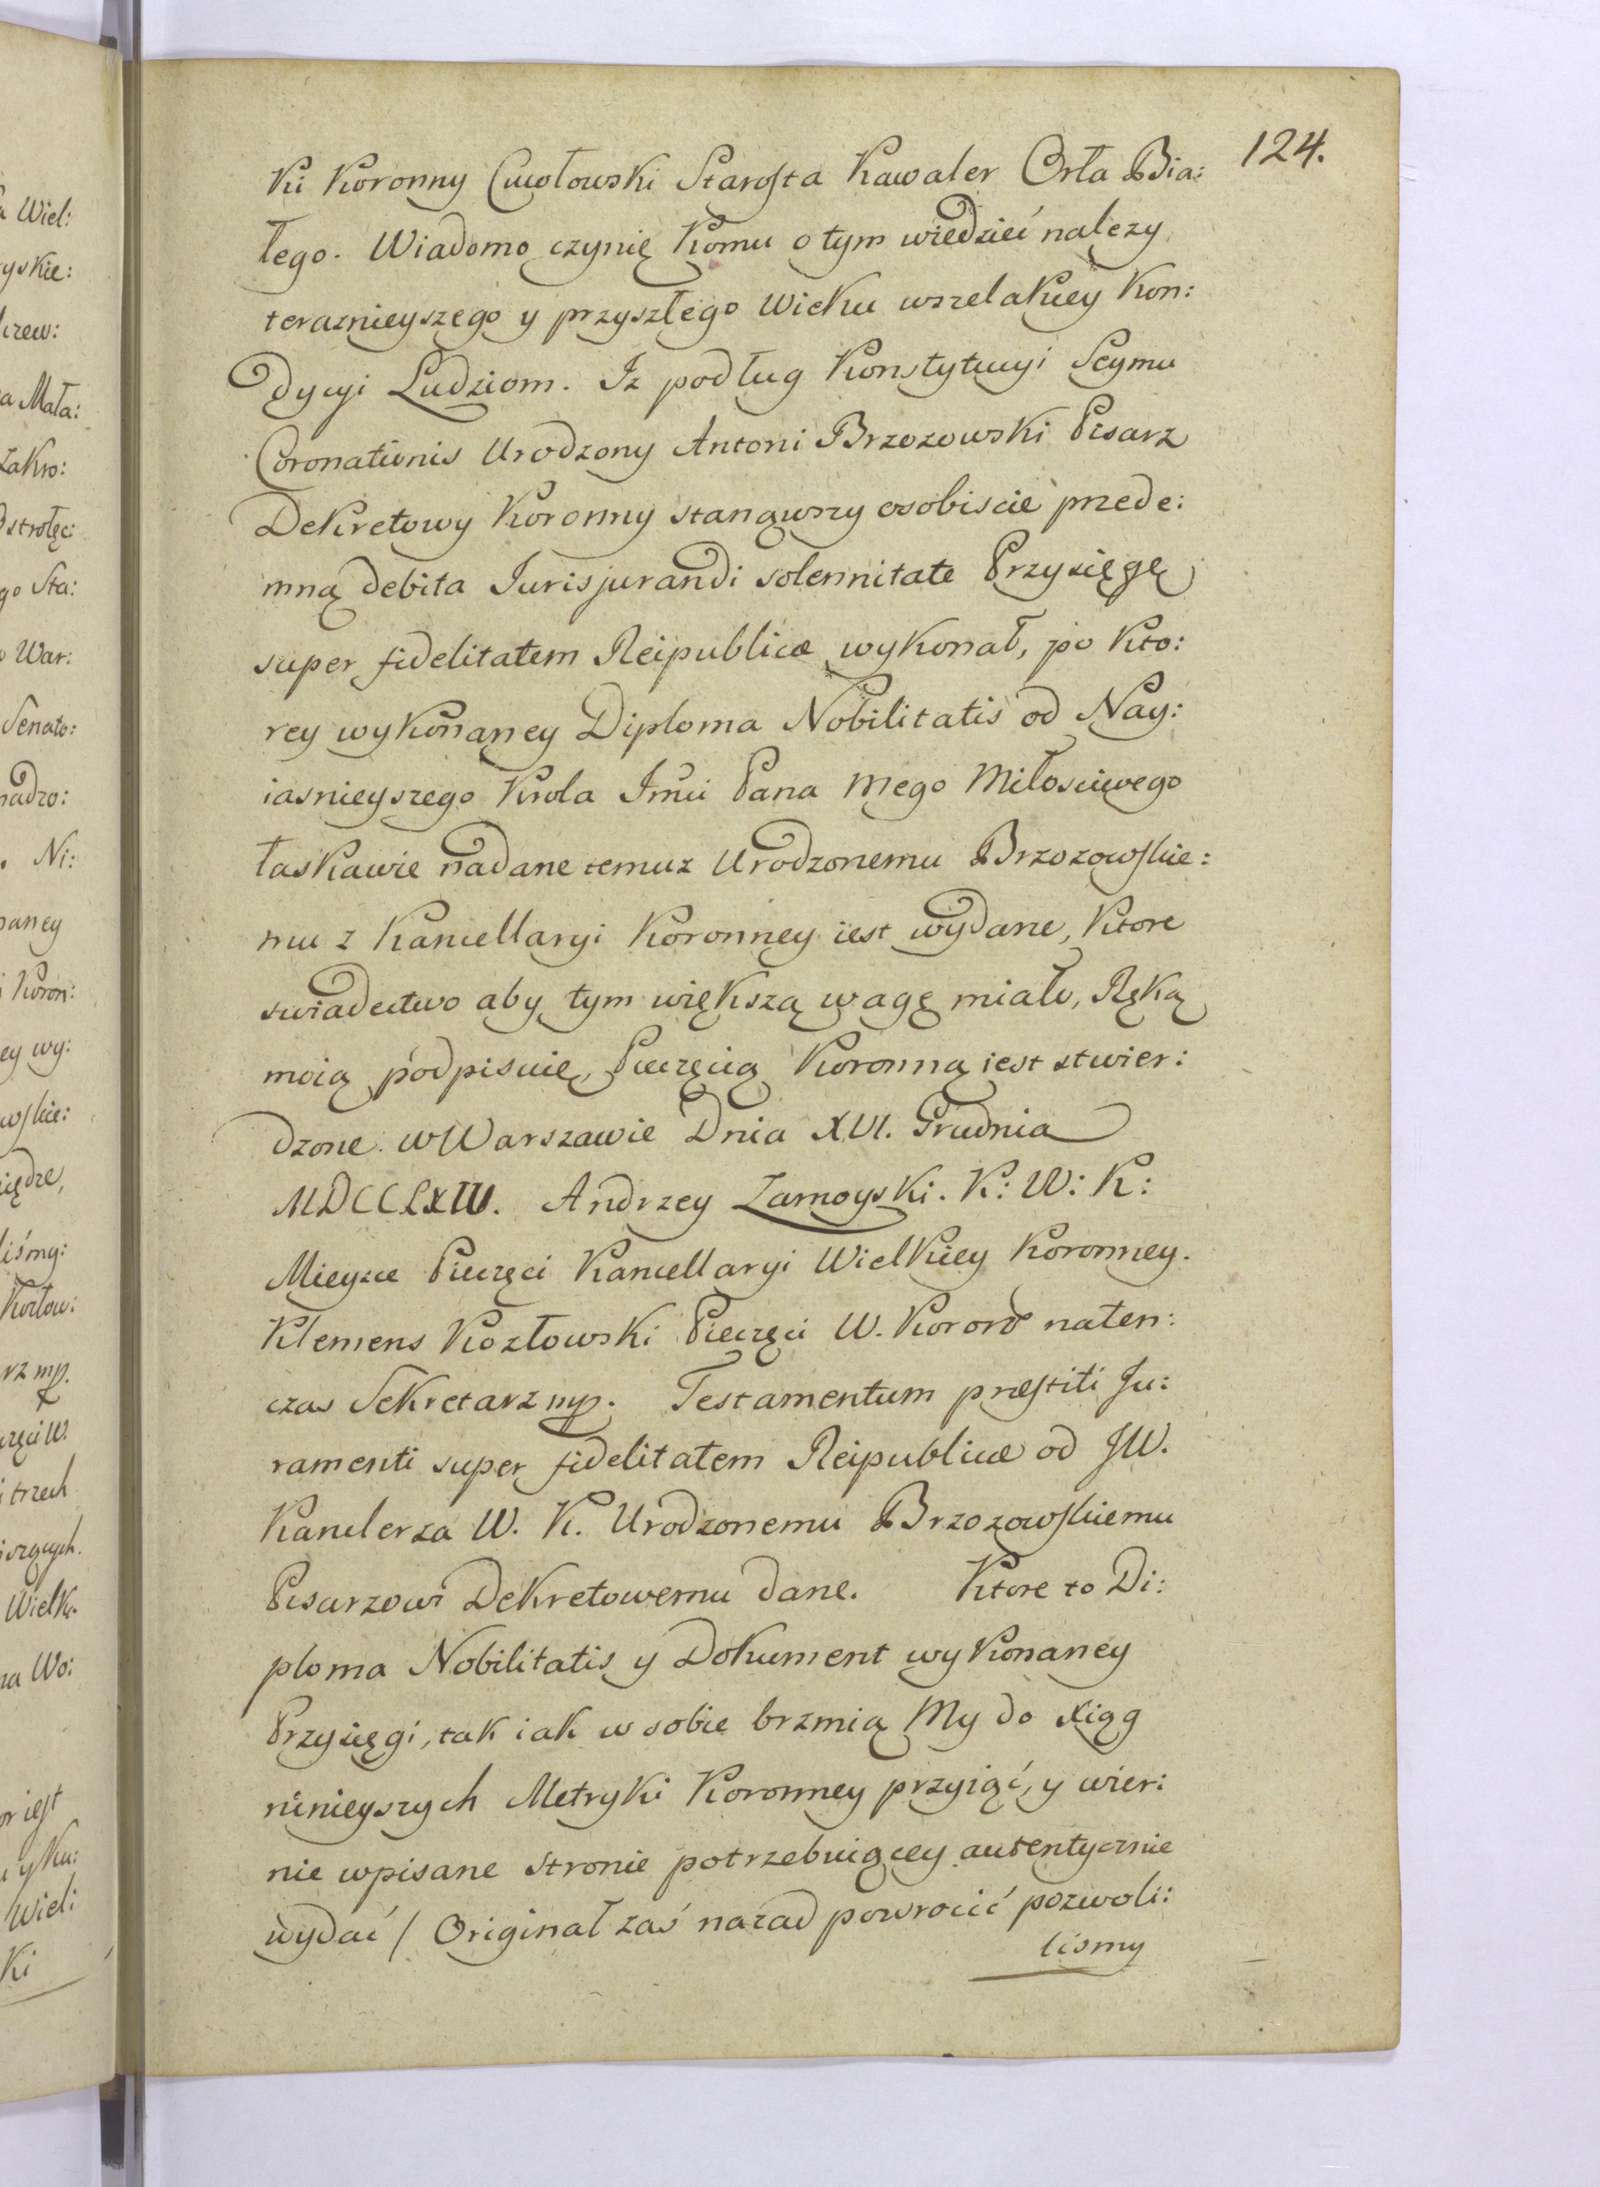 124.
ki Koronny Cwołowski Starosta Kawaler Orła Bia:
łego. Wiadomo czynię Komu o tym wiedzieć nalezy
teraznieyszego y przyszłego Wieku wszelakiey Kon:
dycyi Ludziom. Iz podług Konstytucyi Seymu
Coronationis Urodzony Antoni Brzozowski Pisarz
Dekretowy Koronny stanąwszy osobiscie przede:
mną debita Jurisjurandi solennitate Przysięgę
super fidelitatem Reipublicæ wykonał, po Kto:
rey wykonaney Diploma Nobilitatis od Nay:
iasnieyszego Krola Jmci Pana Mego Miłosciwego
łaskawie nadane temuz Urodzonemu Brzozowskie:
mu z Kancellaryi Koronney iest wydane, Ktore
swiadectwo aby tym większą wagę miało, Ręką
moią podpisuię, Pieczęcią Koronną iest stwier:
dzone. w Warszawie Dnia XVI. Grudnia
MDCCLXIV. Andrzey Zamoyski. K: W: K:
Mieysce Pieczęci Kancellaryi Wielkiey Koronney.
Klemens Kozłowski Pieczęci W. Koron natén:
czas Sekretarz mp. Testamentum præstiti Ju:
ramenti super fidelitatem Reipublicæ od JW.
Kanclerza W. K. Urodzonemu Brzozowskiemu
Pisarzowi Dekretowemu dane. Ktore to Di:
ploma Nobilitatis y Dokument wykonaney
Przysięgi, tak iak w sobie brzmią My do Xiąg
ninieyszych Metryki Koronney przyiąć, y wier:
nie wpisane stronie potrzebuiącey autentycznie
wydać / Originał zaś nazad powrocić pozwoli:
lismy